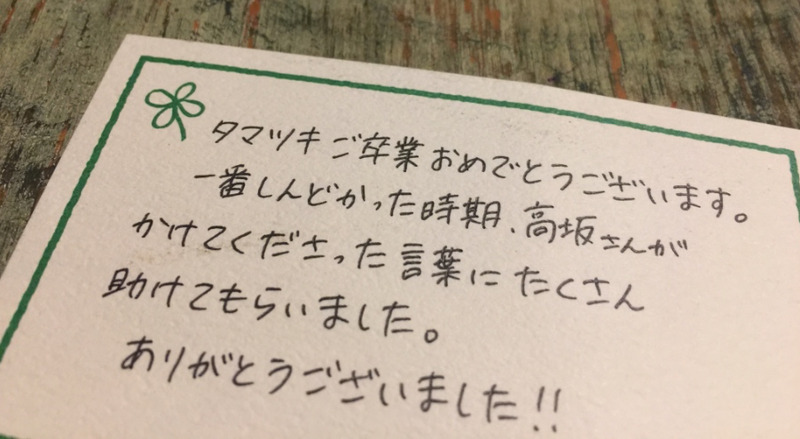 タマツキご卒業おめでとうございます。
一番しんどかった時期、高坂さんが
かけてくださった言葉にたくさん
助けてもらいました。
ありがとうございました!!